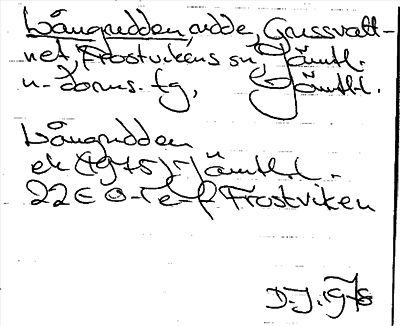 Långudden, udde, Grussvatt-
net, Frostvikens sn, Jämtl.
n. doms. tg, Jämtl.l.
Långudden
ek (1975) Jämtl.l.
22E 0-1 e-f Frostviken
D.J. 1978